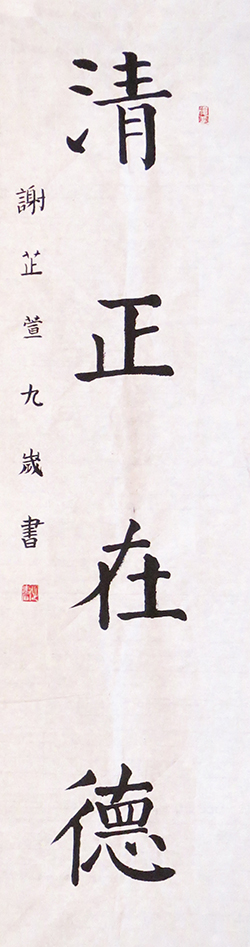 清正在德
謝芷萱九歲書